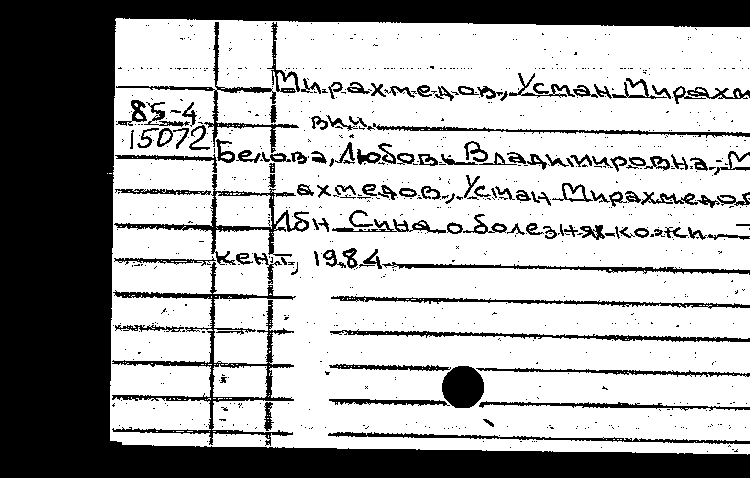 Мирахмедов, Усман Мирахм
85-4
вич.
15072
Белова, Любовь Владимировна, М
ахмедов, Усман Мирахмедов
Ибн Сина о болезнях кожи. – Т
кент, 1984.